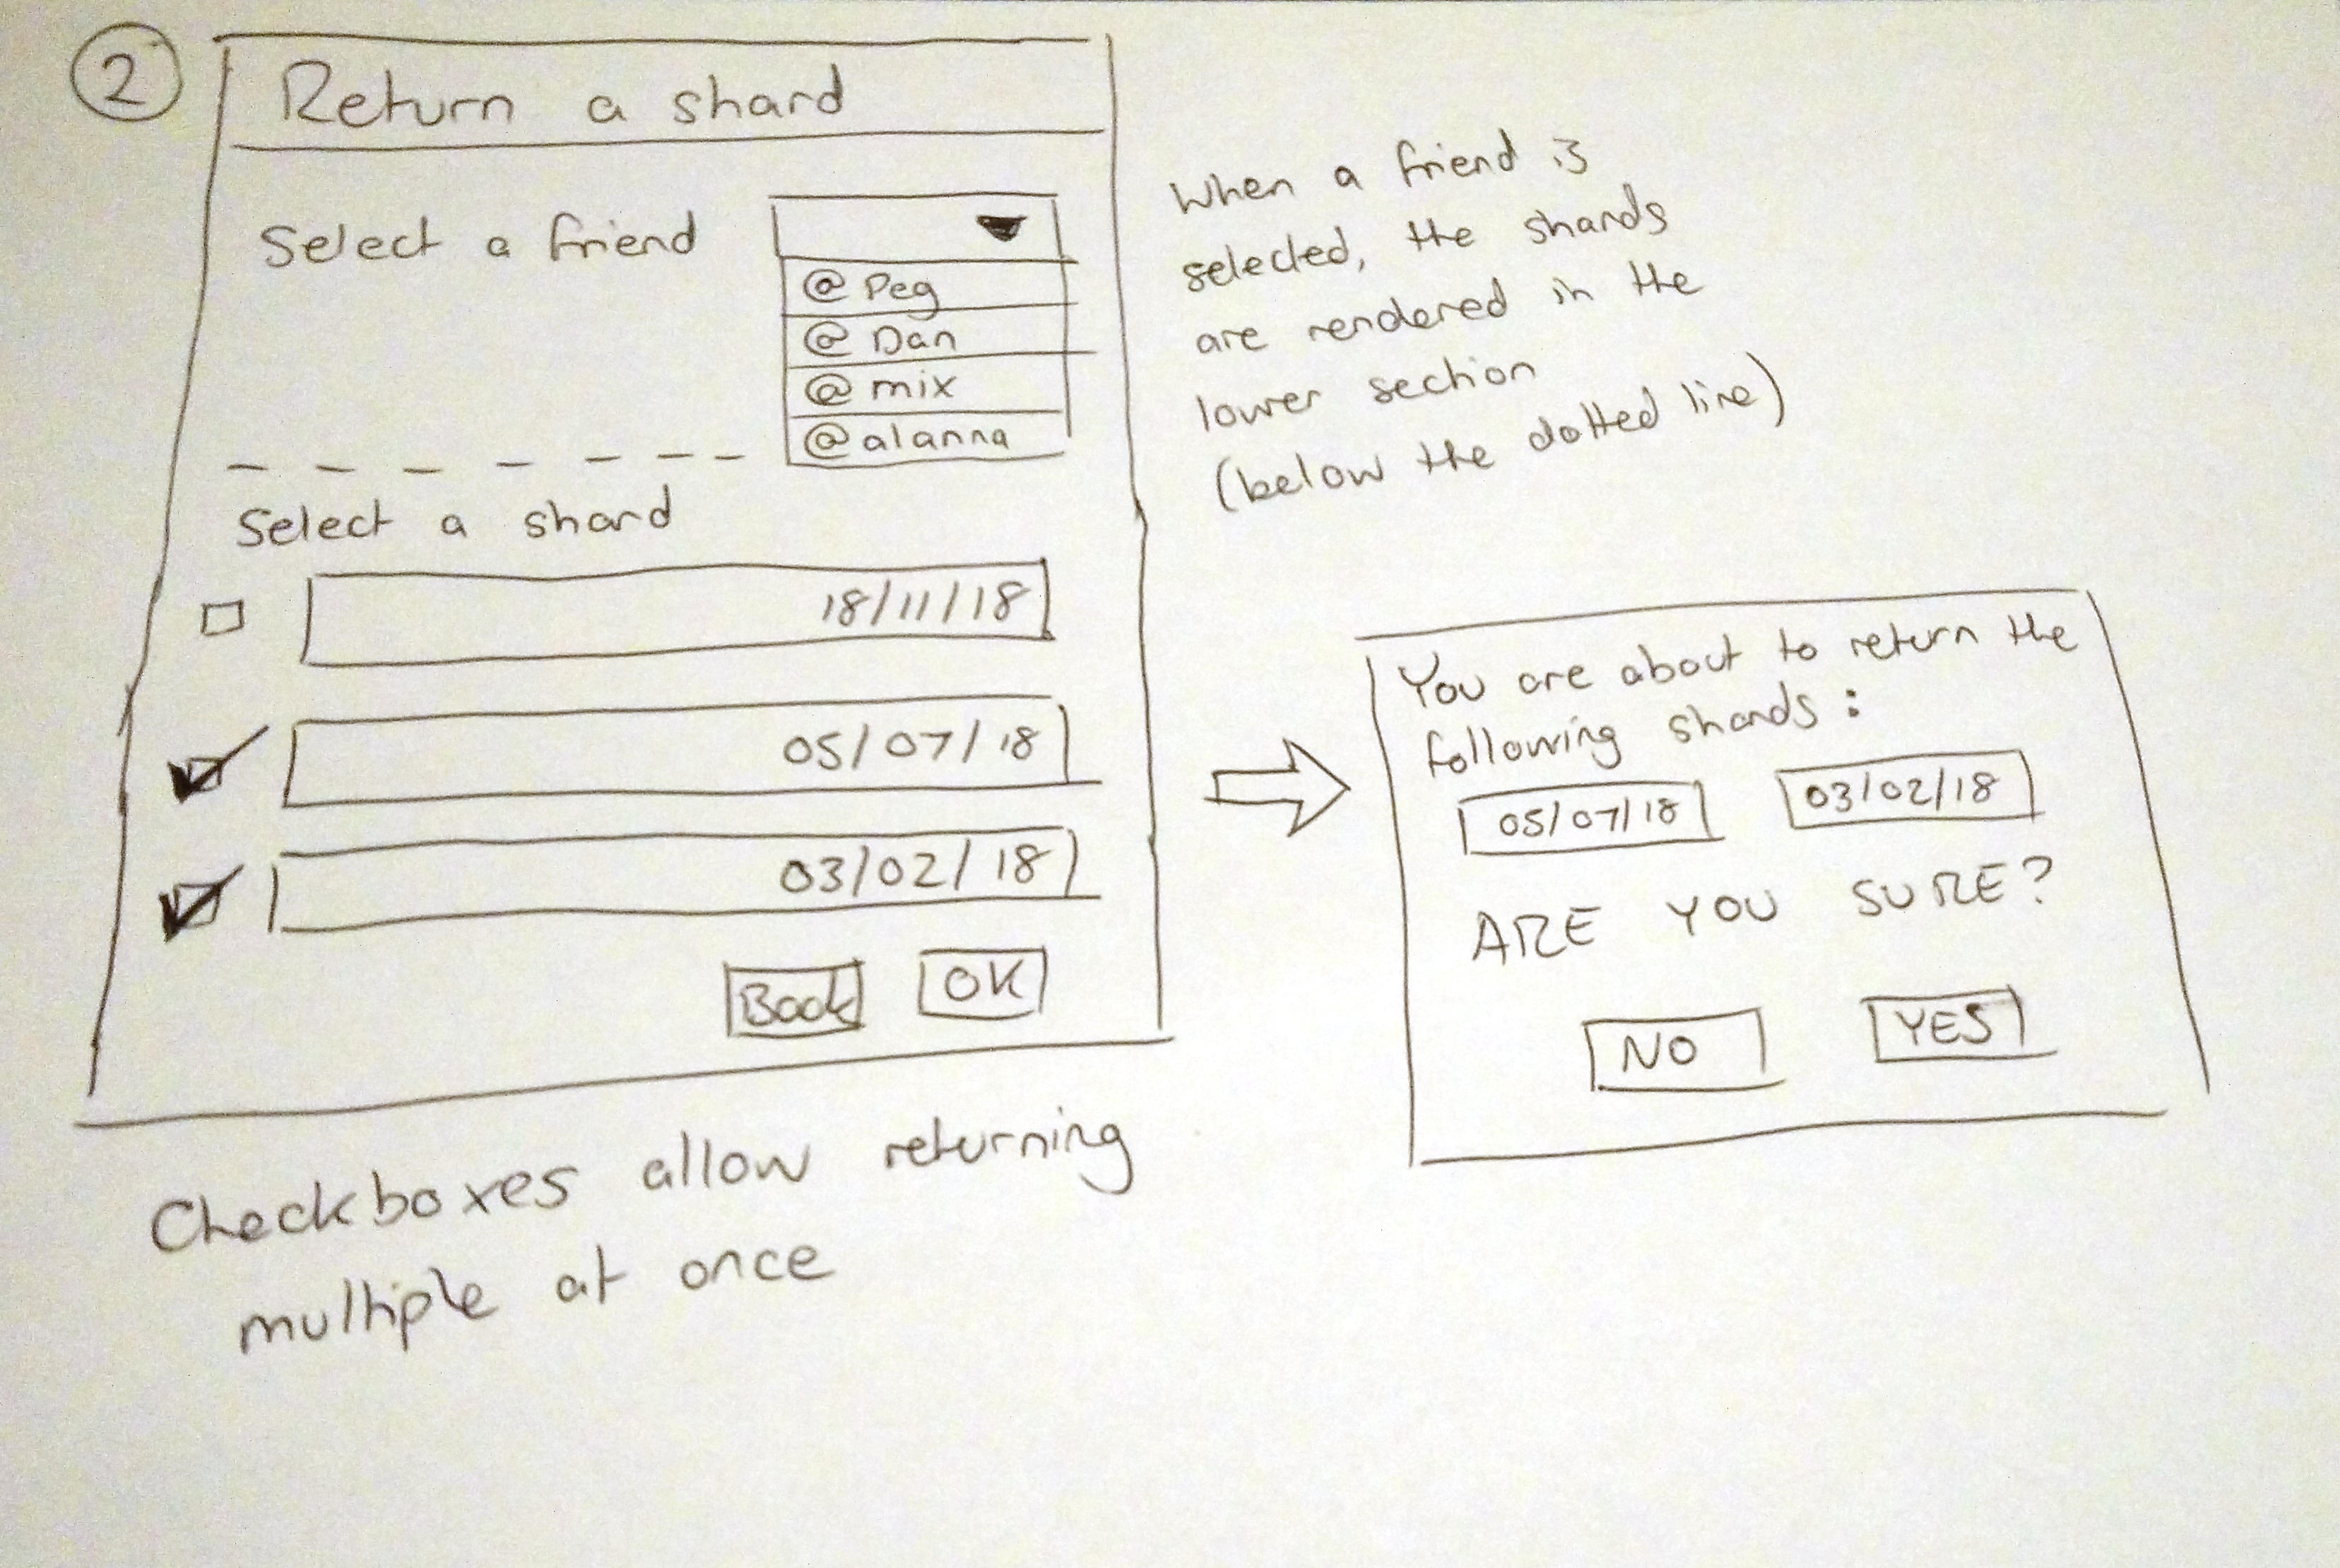 2
Return a shard
Select a friend
@Peg
@Dan
@mix
@alanna
When a friend is
selected, the shards
are rendered in the
lower section
(below the dotted line)
Select a shard
18/11/18
05/07/18
03/02/18
Back OK
You are about to return the
following shards:
05/07/18 03/02/18
ARE YOU SURE?
NO YES
Checkboxes allow returning
multiple at once